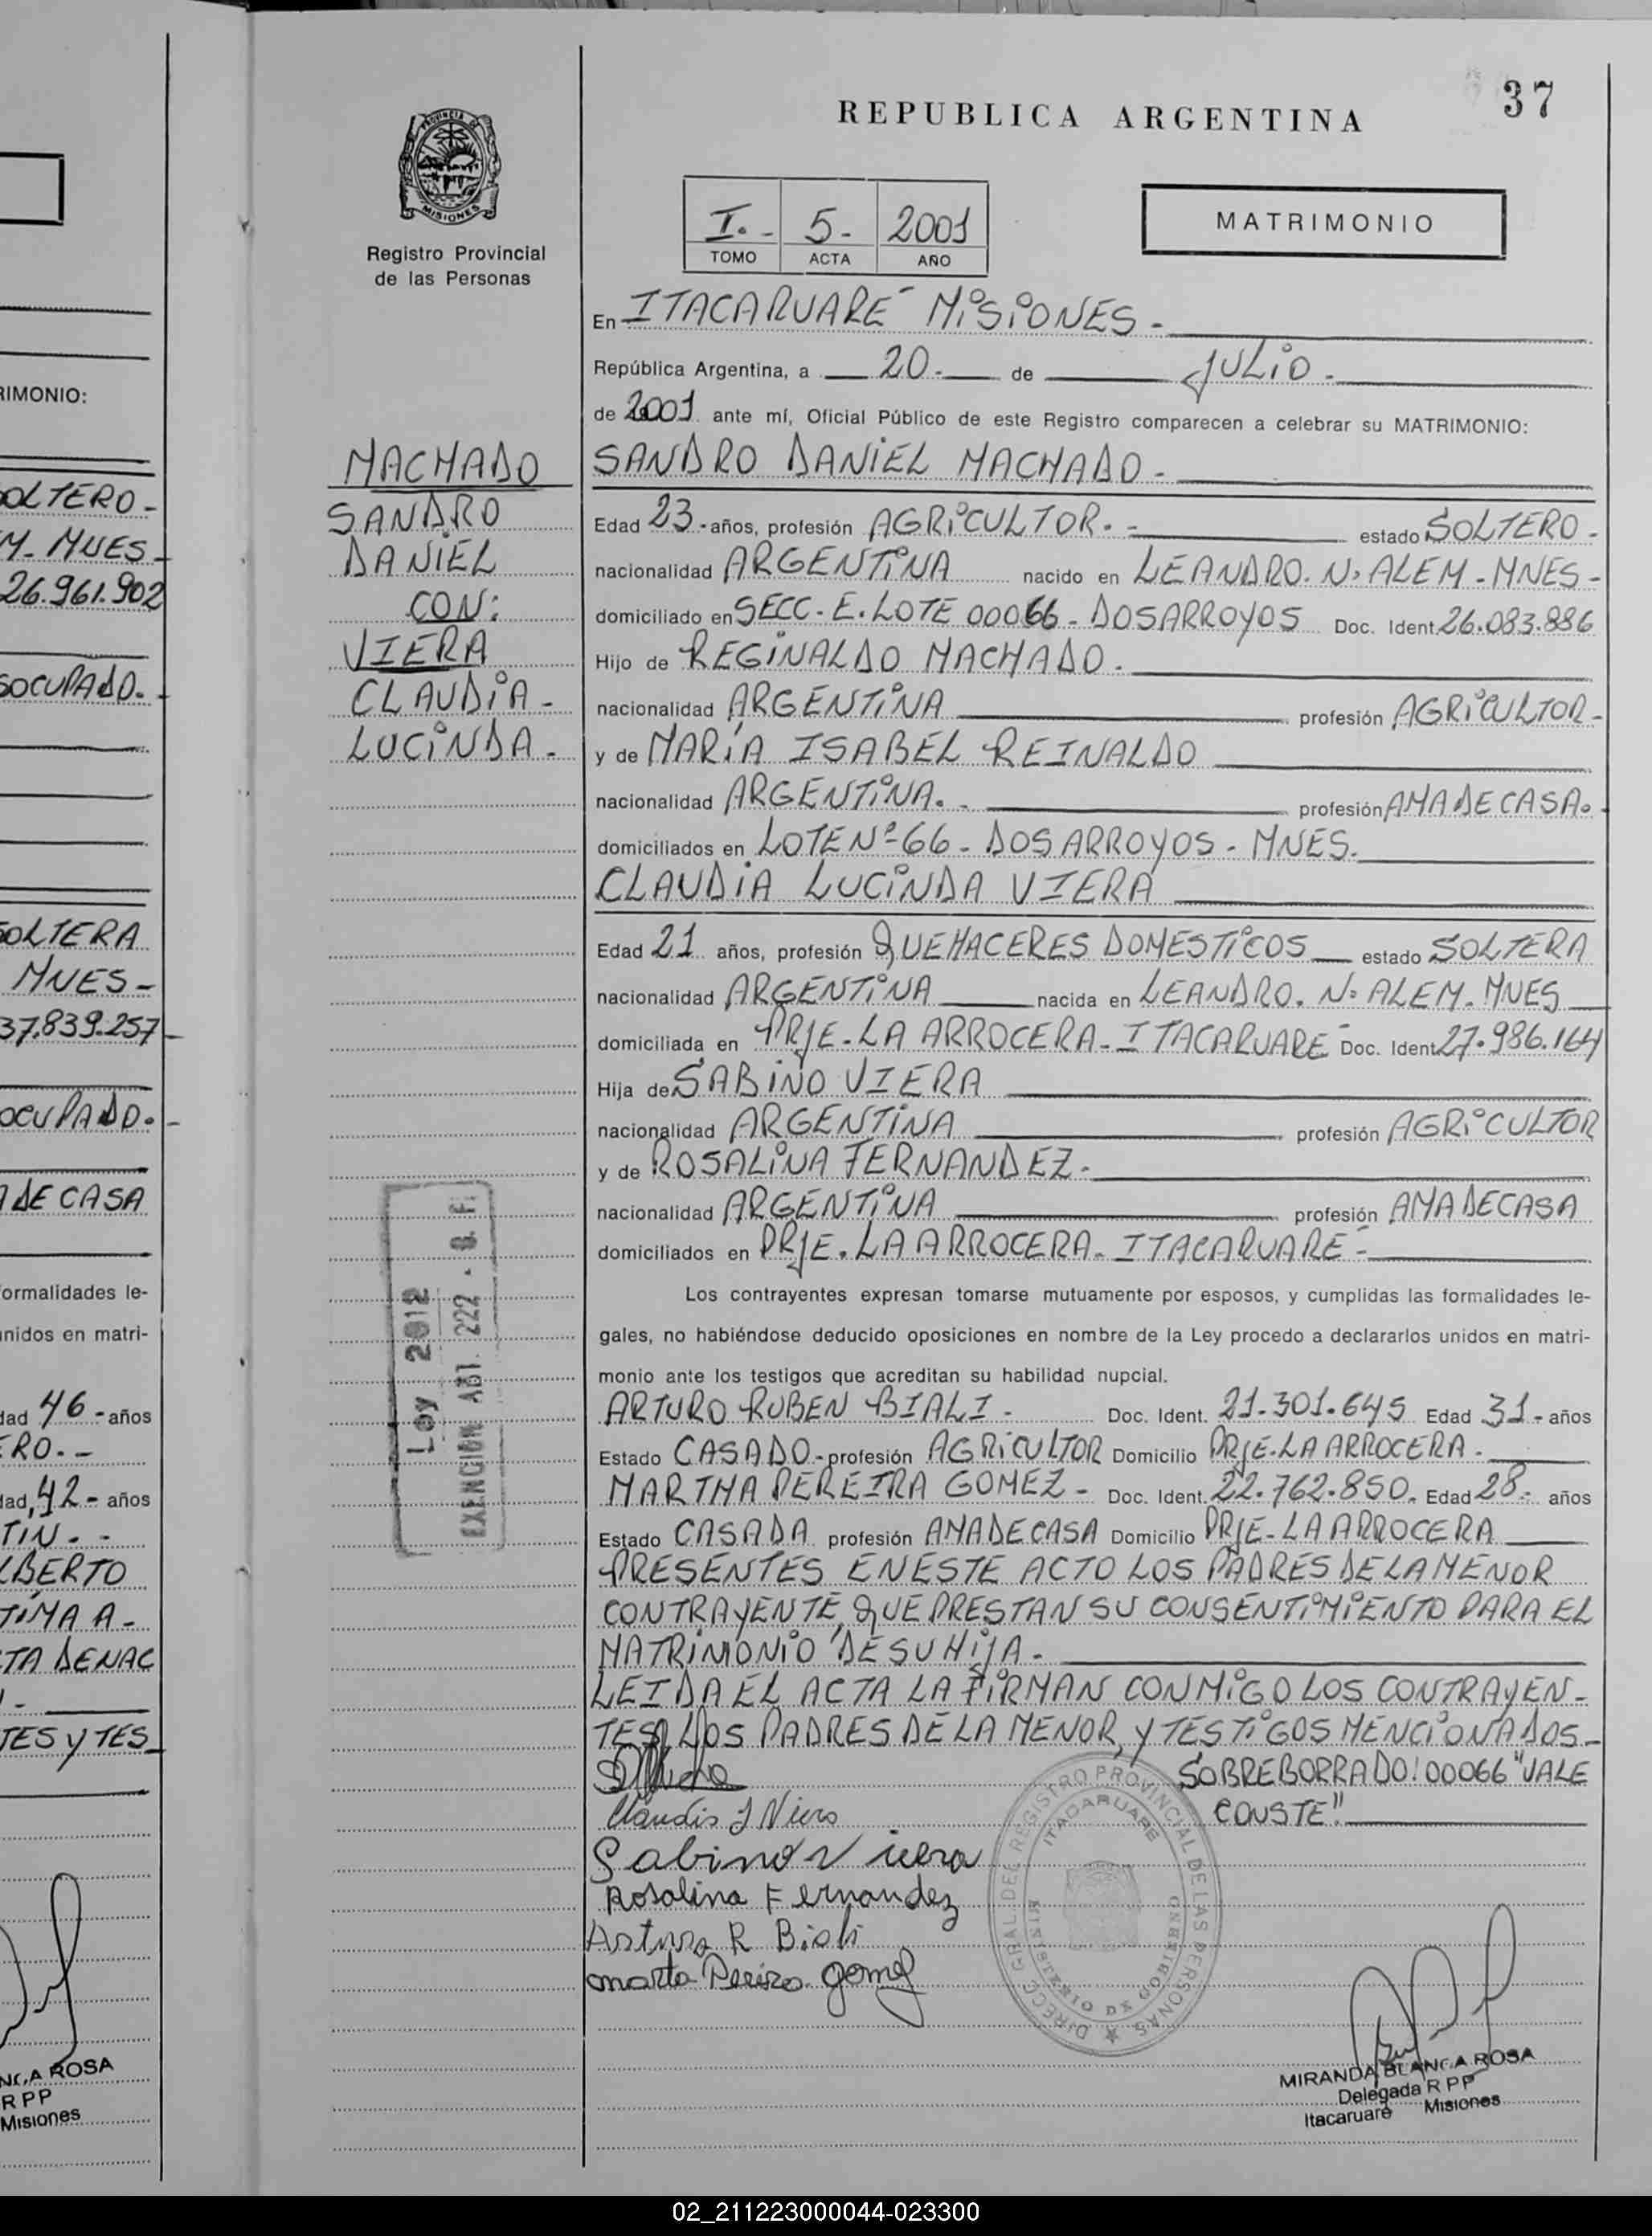 REPUBLICA ARGENTINA
37
PROVINCIA DE
MISIONES
Registro Provincial
de las Personas
I.- 5- 2001
TOMO ACTA AÑO
MATRIMONIO
En ITACARUARE MISIONES-
República Argentina, a 20- de JULIO-
de 2001 ante mí, Oficial Público de este Registro comparecen a celebrar su MATRIMONIO:
SANDRO DANIEL MACHADO-
Edad 23-años, profesión AGRICULTOR.- estado SOLTERO-
nacionalidad ARGENTINA nacido en LEANDRO. N. ALEM-MNES-
domiciliado en SECC-E.LOTE 00066-DOSARROYOS Doc. Ident. 26.083.886
Hijo de REGINALDO MACHADO.
nacionalidad ARGENTINA profesión AGRICULTOR-
y de MARÍA ISABEL REINALDO
nacionalidad ARGENTINA.- profesión AMADECASA.
domiciliados en LOTE Nº66-DOSARROYOS-MNES.
CLAUDIA LUCINDA VIERA
Edad 21 años, profesión QUEHACERES DOMESTICOS estado SOLTERA
nacionalidad ARGENTINA nacida en LEANDRO. N. ALEM-MNES
domiciliada en PRJE-LA ARROCERA-ITACARUARE- Doc. Ident 27.986.164
Hija de SABINO VIERA
nacionalidad ARGENTINA profesión AGRICULTOR
y de ROSALINA FERNANDEZ-
nacionalidad ARGENTINA profesión AMADECASA
domiciliados en PRJE.LA ARROCERA-ITACARUARE-
Los contrayentes expresan tomarse mutuamente por esposos, y cumplidas las formalidades le-
gales, no habiéndose deducido oposiciones en nombre de la Ley procedo a declararlos unidos en matri-
monio ante los testigos que acreditan su habilidad nupcial.
ARTURO RUBEN BIALI- Doc. Ident. 21-301.645 Edad 31-años
Estado CASADO-profesión AGRICULTOR Domicilio PRJE-LA ARROCERA-
MARTHA PEREIRA GOMEZ- Doc. Ident. 22.762.850. Edad 28- años
Estado CASADA profesión AMADECASA Domicilio PRJE-LA ARROCERA
PRESENTES EN ESTE ACTO LOS PADRES DE LA MENOR
CONTRAYENTE, QUE PRESTAN SU CONSENTIMIENTO PARA EL
MATRIMONIO DE SU HIJA.-
LEIDA EL ACTA LA FIRMAN CONMIGO LOS CONTRAYEN-
TES, LOS PADRES DE LA MENOR, Y TESTIGOS MENCIONADOS-
SOBREBORRADO! 00066 "VALE
CONSTE"
Sabino Viera
Rosalina Fernandez
Arturo R Biali
DIRECC. GRAL. DEL REGISTRO PROVINCIAL DE LAS PERSONAS
ITACARUARE
MINISTERIO DE GOBIERNO
MIRANDA BLANCA ROSA
Delegada R P P
Itacaruaré Misiones
MACHADO
SANDRO
DANIEL
CON:
VIERA
CLAUDIA-
LUCINDA-
Ley 2012
EXENCION ART. 222
RIMONIO:
SOLTERO-
M-MNES-
26.961.902
SOCUPADO.
SOLTERA
MNES-
37.839.257
OCUPADO.-
A DE CASA
ormalidades le-
unidos en matri-
dad 46-años
ERO.-
dad, 42-años
TIN.-
LBERTO
TIMA A-
TA DENAC
TES Y TES
NCA ROSA
R PP
Misiones
02_211223000044-023300